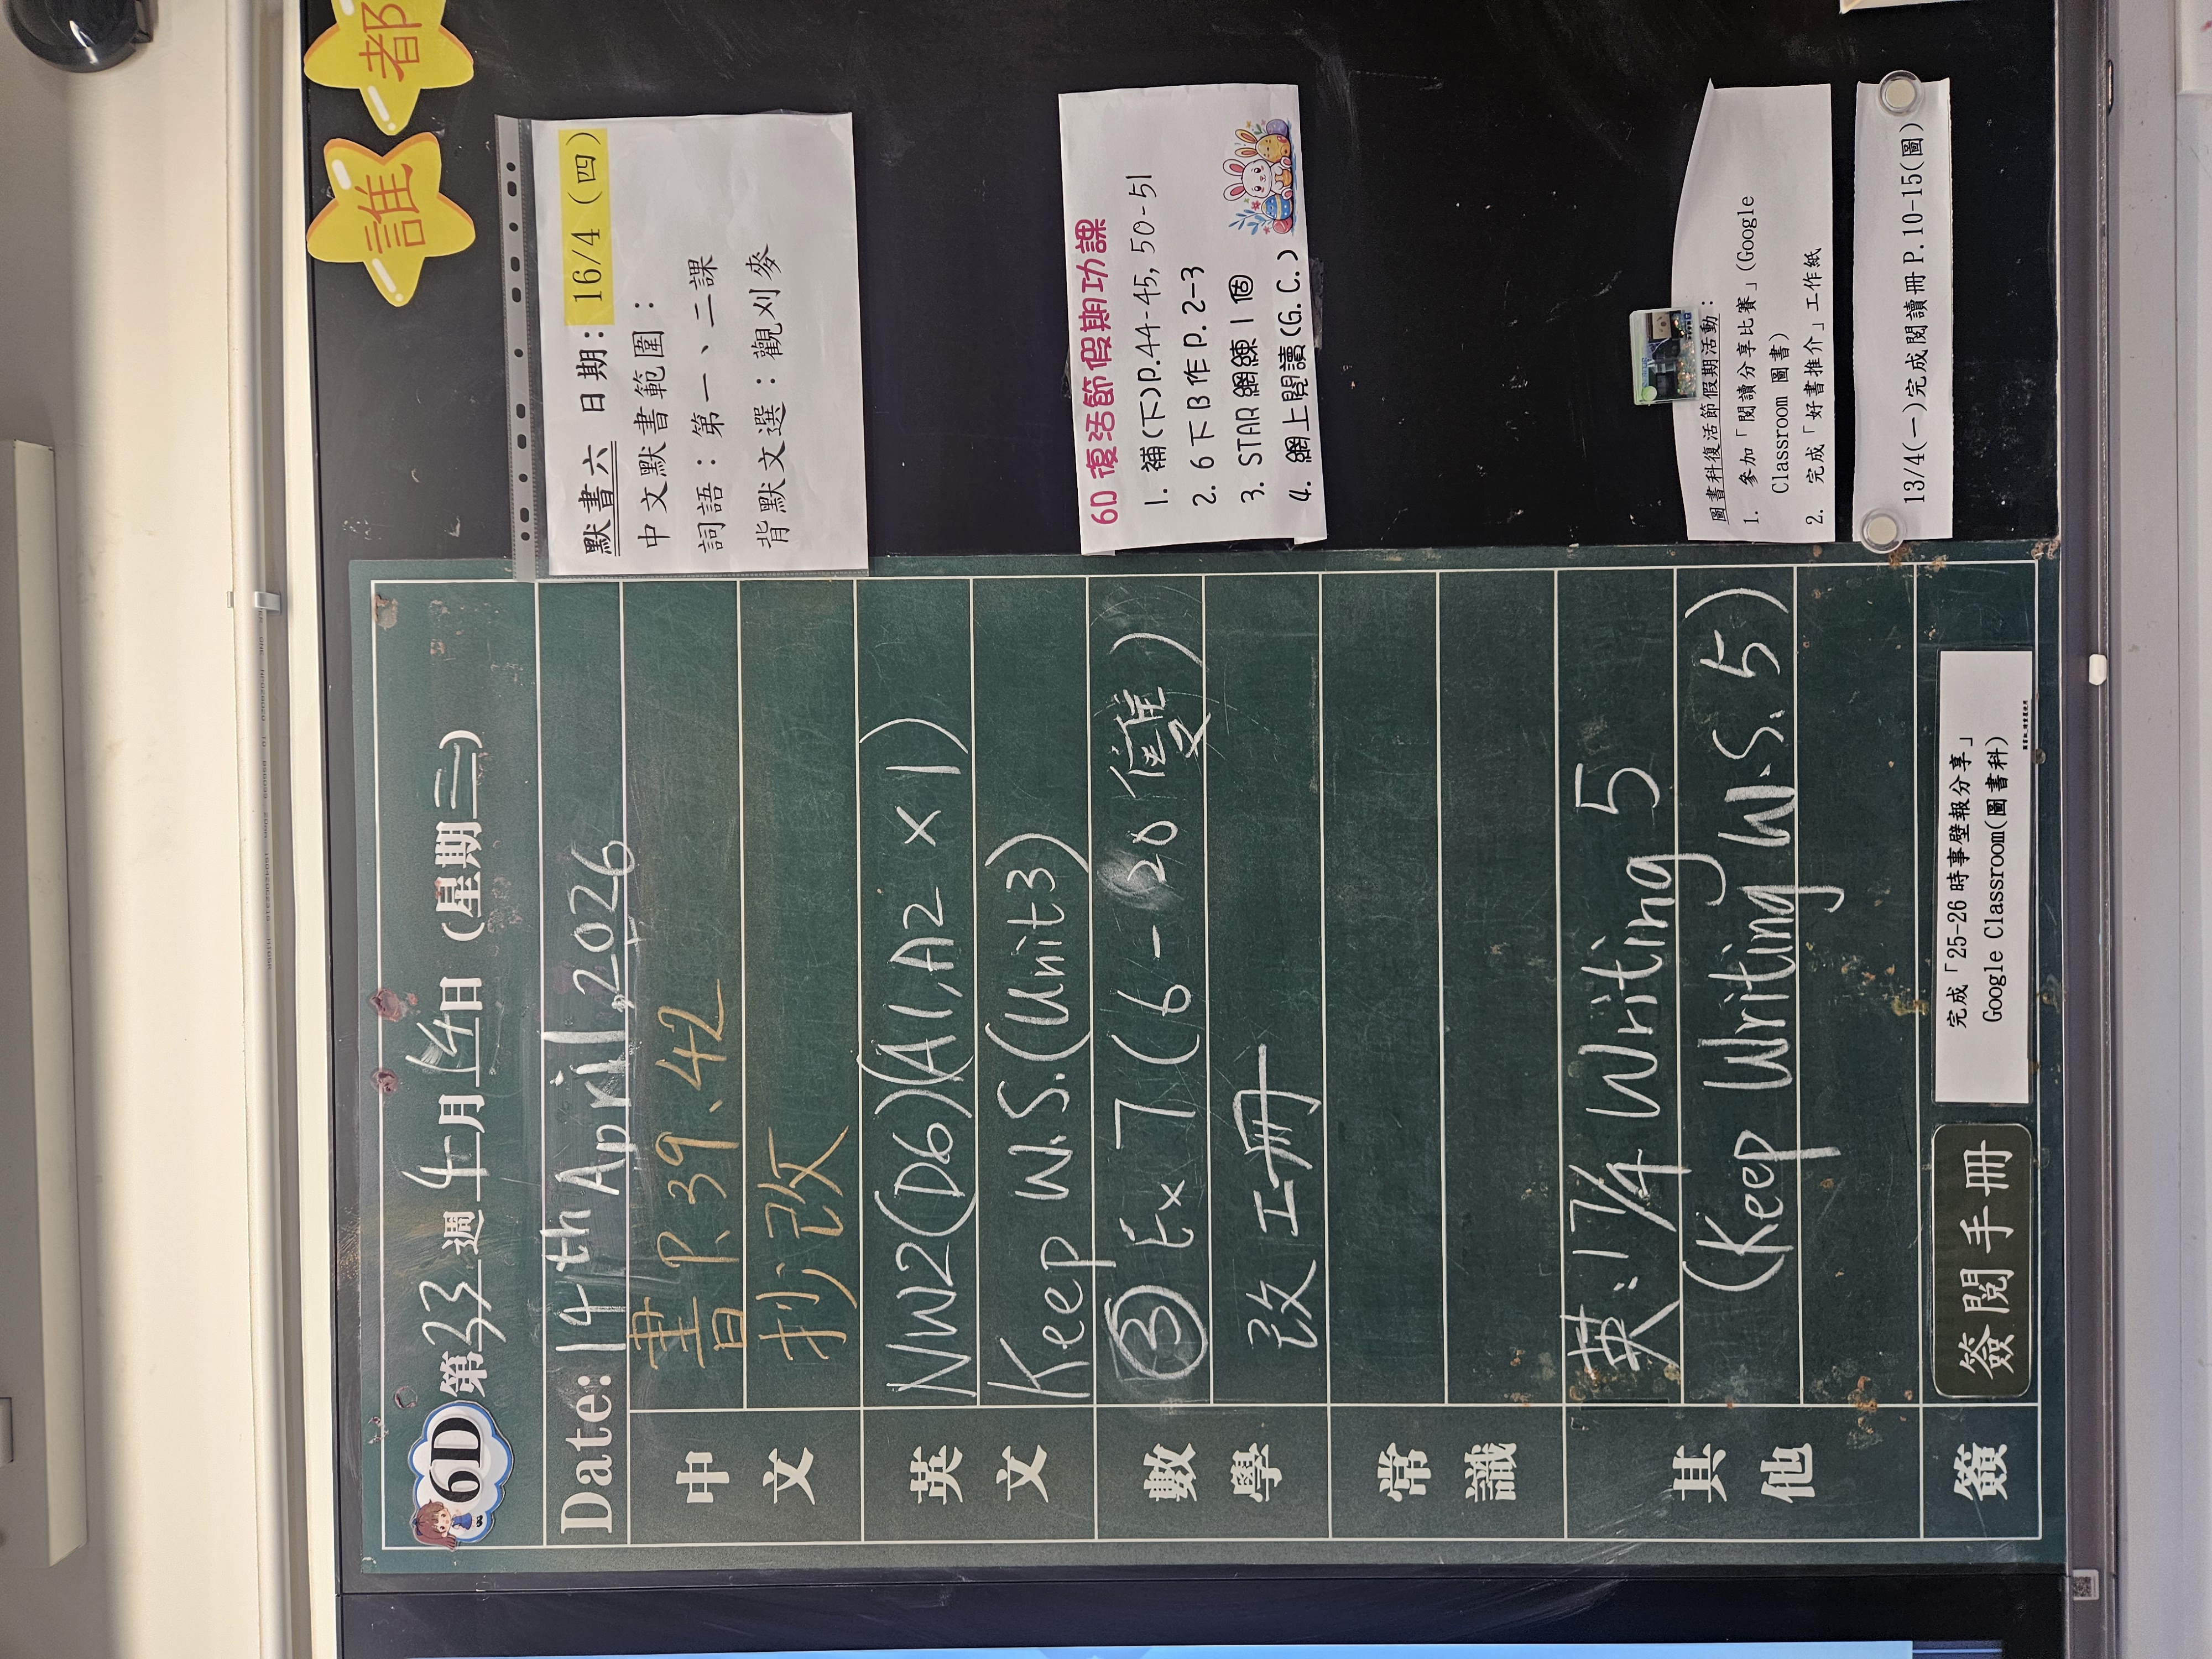 誰都
6D 第33週 4月14日 (星期二)
Date: 14th April, 2026
中文
書P.39、42
抄改
英文
NW2(D6)(A1,A2 x1)
Keep W.S.(Unit3)
數學
③Ex 7 (6-20雙)
改工冊
常識
其他
英:17/4 Writing 5
(Keep Writing W.S. 5)
簽
簽閱手冊
完成「25-26時事壁報分享」
Google Classroom(圖書科)
默書六 日期: 16/4 (四)
中文默書範圍:
詞語:第一、二課
背默文選:觀刈麥
6D復活節假期功課
1. 補(下)P.44-45, 50-51
2. 6下B作P.2-3
3. STAR網練1個
4. 網上閱讀(G.C.)
圖書科復活節假期活動:
1. 參加「閱讀分享比賽」(Google
Classroom 圖書)
2. 完成「好書推介」工作紙
13/4(一)完成閱讀冊P.10-15(圖)